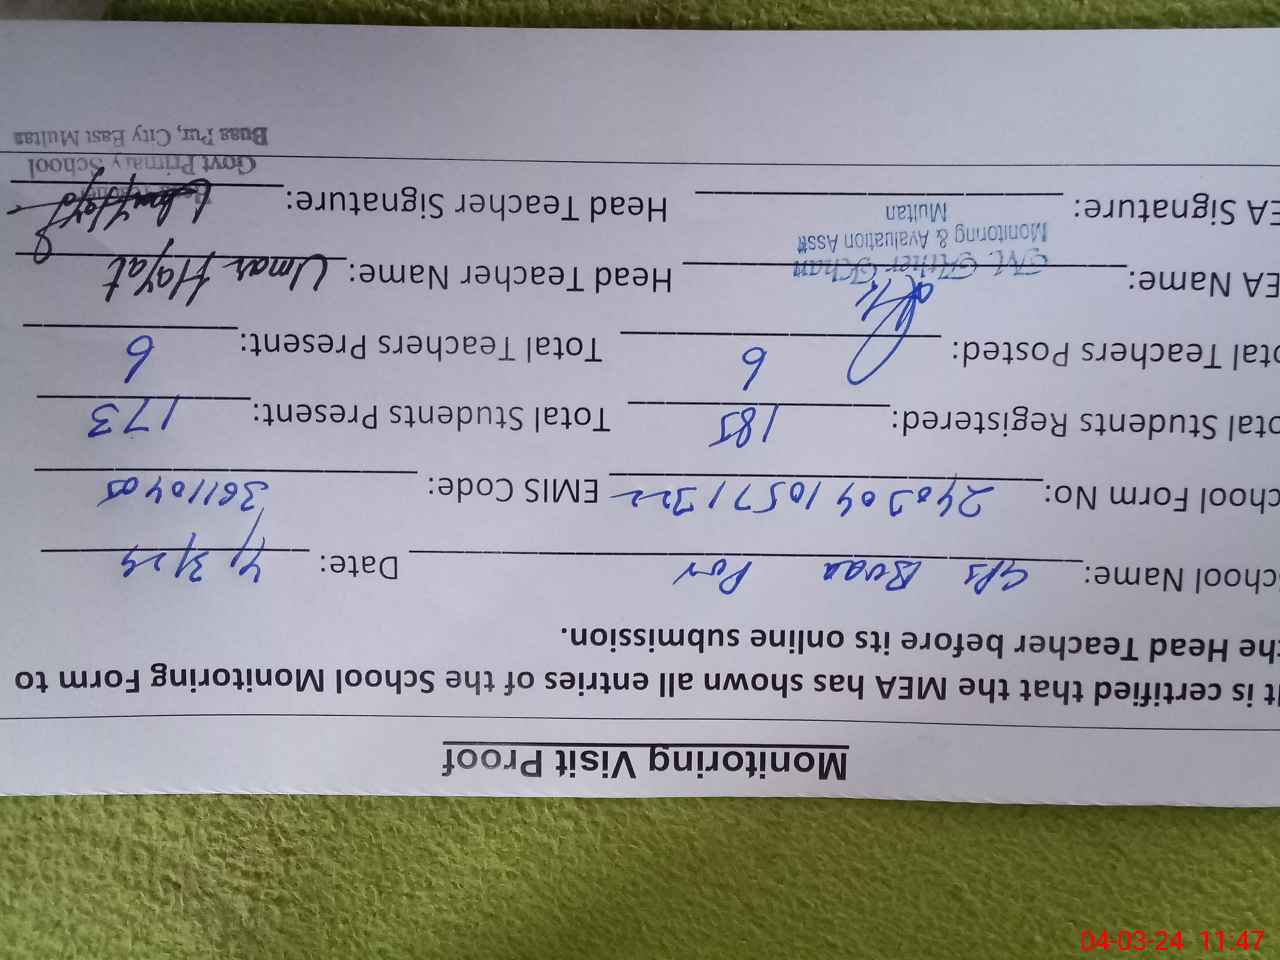 Monitoring Visit Proof
It is certified that the MEA has shown all entries of the School Monitoring Form to
the Head Teacher before its online submission.
School Name: GPS Buaa Pur Date: 4/3/24
chool Form No: EMIS Code:
otal Students Registered: 185 Total Students Present: 173
otal Teachers Posted: 6 Total Teachers Present: 6
EA Name: M. Ather Khan Head Teacher Name: Umar Hayat
Monitoring & Evaluation Asstt
Multan
EA Signature: Head Teacher Signature:
Govt Primary School
Buaa Pur, City East Multan
04-03-24 11:47